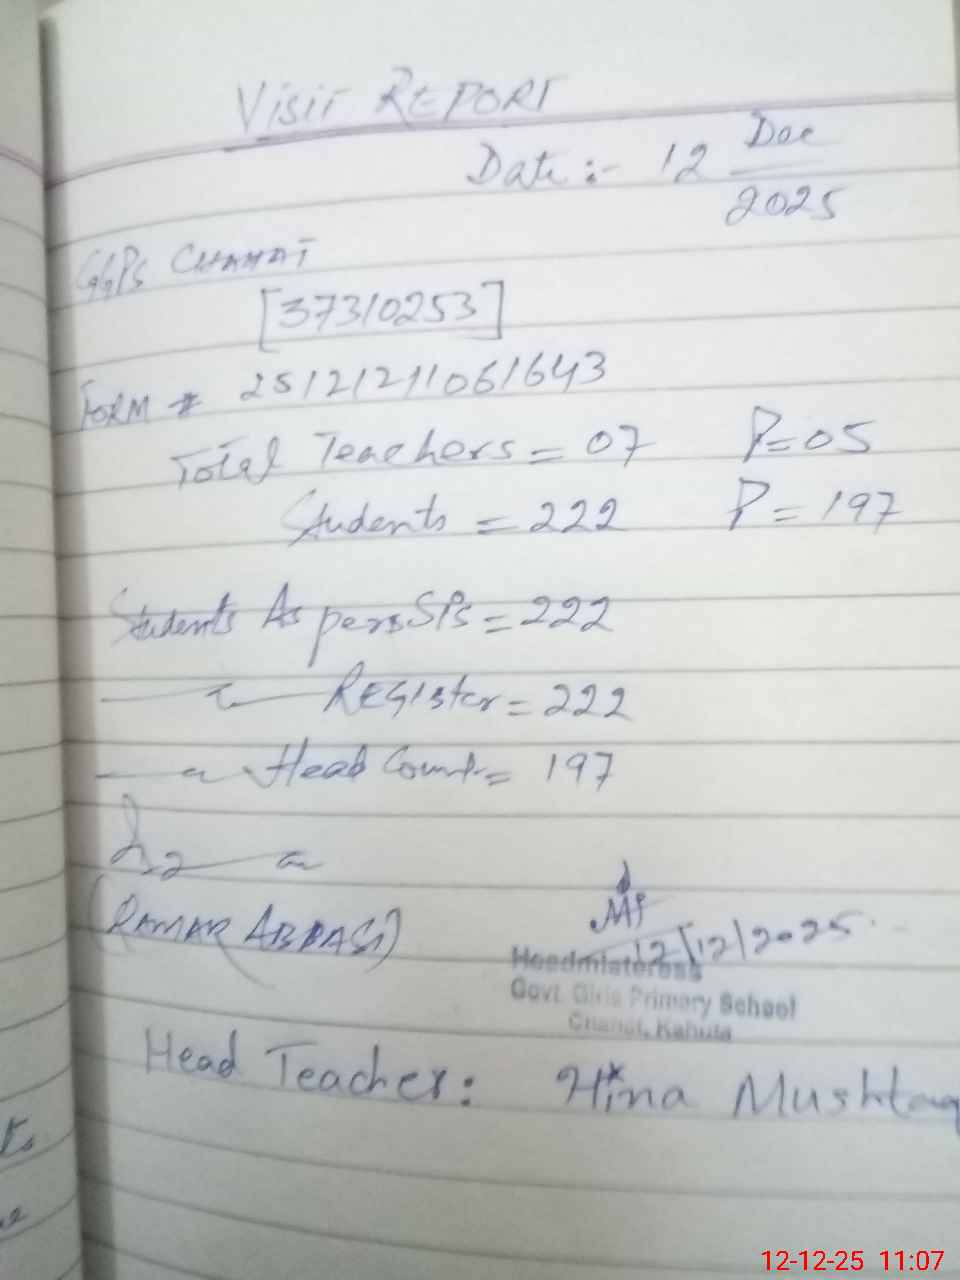 Visit REPORT
Date :- 12 Dec
2025
GGPS CHANAT
[37310253]
FORM # 25121211061643
Total Teachers = 07 P=05
Students = 222 P = 197
Students As per SIS = 222
Register = 222
Head Count = 197
(QAMAR ABBASI)
12/12/2025
Headmistress
Govt. Girls Primary School
Chanat, Kahuta
Head Teacher: Hina Mushtaq
12-12-25 11:07